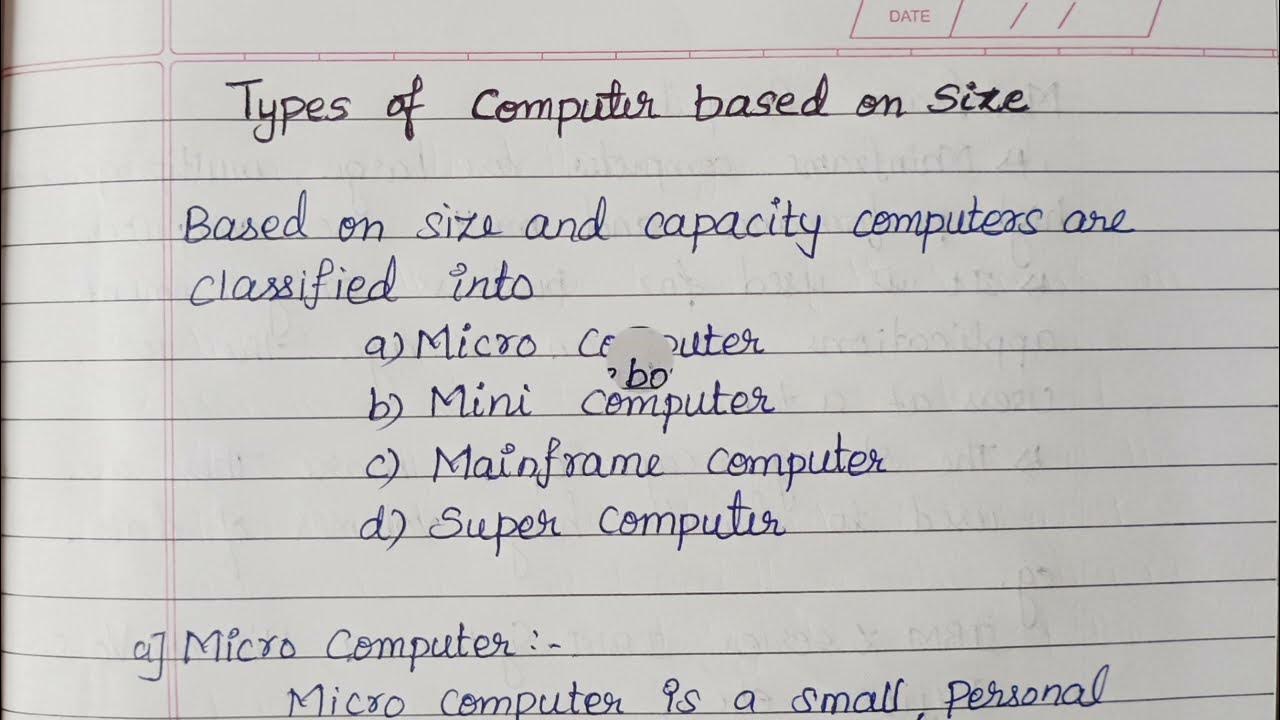 DATE / /
Types of Computer based on Size
Based on size and capacity computers are
classified into
a) Micro computer
b) Mini computer
c) Mainframe computer
d) Super computer
a] Micro Computer:-
Micro computer is a small, personal